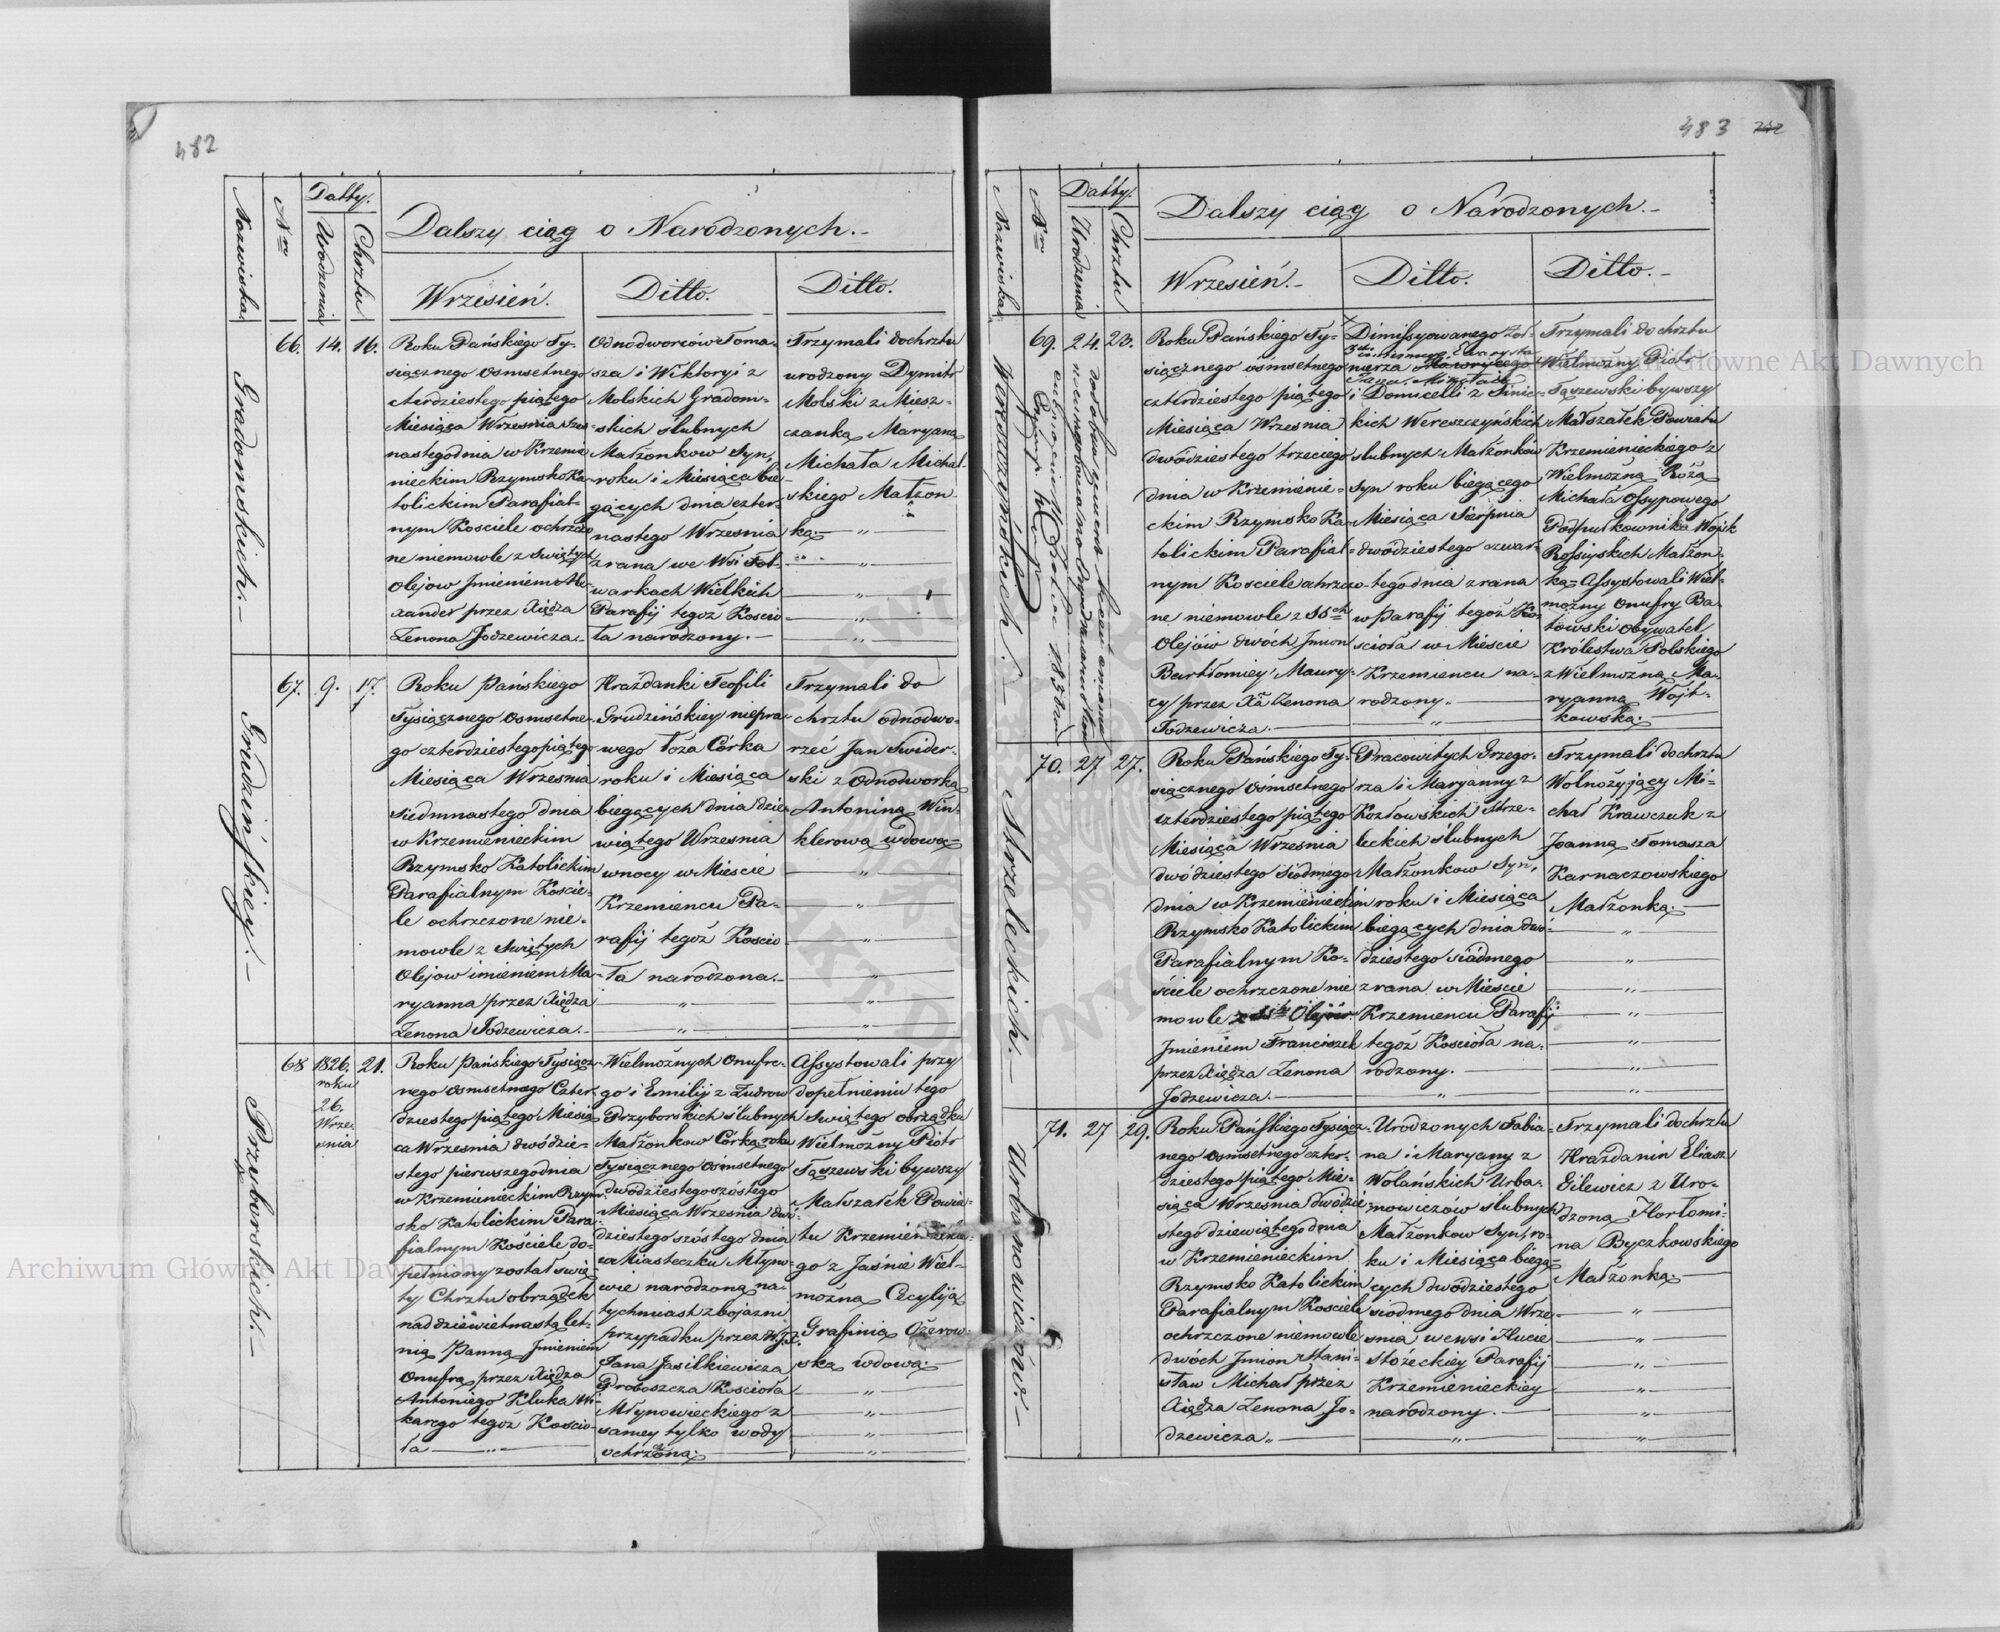 482
Nazwiska.
Nro
Datty.
Urodzenia
Chrztu
Dalszy ciąg o Narodzonych.-
Wrzesień.
Ditto.
Ditto.
Gradomskich.-
66. 14. 16.
Roku Pańskiego Ty-
siącznego Osmsetnego
czterdziestego piątego
Miesiąca Września szes-
nastego dnia w Krzemie
nieckim Rzymsko Ka-
tolickim Parafial-
nym Kosciele ochrzczo
ne niemowle z Swiętych
Olejow Imieniem Ale-
xander przez Xiędza
Zenona Jodzewicza.-
Odnodworców Toma-
sza i Wiktoryi z
Molskich Gradom-
skich ślubnych
Małżonkow Syn,
roku i Miesiąca bie-
gących dnia czter-
nastego Września
zrana we Wsi Fol-
warkach Wielkich
Parafij tegoż Koscio
ła narodzony.-
Trzymali do chrztu
urodzony Dymitr
Molski z Miesz-
czanką Maryaną
Michała Michal-
skiego Małżon
ką.-
Grudzińskiey.-
67. 9. 17.
Roku Pańskiego
Tysiącznego Osmsetne-
go czterdziestego piątego
Miesiąca Września
siedmnastego dnia
w Krzemienieckim
Rzymsko Katolickim
Parafialnym Koscie-
le ochrzczone nie-
mowle z Swiętych
Olejow imieniem Ma-
ryanna przez Xiędza
Zenona Jodzewicza.-
Hrażdanki Teofili
Grudzińskiey niepra-
wego Łoża Córka
roku i Miesiąca
biegących dnia dzie-
wiątego Września
w nocy w Miescie
Krzemiencu Pa-
rafij tegoż Koscio
ła narodzona.-
Trzymali do
chrztu odnodwo-
rzec Jan Swider-
ski z Odnodworką
Antoniną Win-
klerową wdową-
Przyborskich.-
68 1826. roku 26. Wrze śnia 21.
Roku Pańskiego Tysiącz-
nego Osmsetnego Czter-
dziestego piątego Miesią
ca Września dwódzie-
stego pierwszego dnia
w Krzemienieckim Rzym-
sko Katolickim Para-
fialnym Kościele do-
pełniony został świę-
ty Chrztu obrządek
nad dziewietnastą let-
nią Panną Imieniem
Onufrą przez Xiędza
Antoniego Kluka Wi-
karego tegoż Koscio-
ła
Wielmożnych Onufre-
go i Emilij z Zudrow
Przyborskich ślubnych
Małżonkow Córką roku
Tysiącznego Osmsetnego
dwódziestego szóstego
Miesiąca Września dwó-
dziestego szóstego dnia
w Miasteczku Młyno-
wie narodzoną na-
tychmiast z bojazni
przypadku przez W.J.X.
Jana Jasilkiewicza
Proboszcza Kościoła
Młynowieckiego z
samey tylko wody
ochrzconą.
Assystowali przy
dopełnieniu tego
Swiętego obrządku
Wielmożny Piotr
Tąszewski bywszy
Małszałek Powia-
tu Krzemienieckie-
go z Jaśnie Wiel-
możną Cecyliją
Grafinią Ożerow-
ską wdową.-
483 242
Nazwiska.
Nro
Datty.
Urodzenia
Chrztu
Dalszy ciąg o Narodzonych.-
Wrzesień.-
Ditto.
Ditto.-
Wereszczyńskich.-
69. 24. 23.
Roku Pańskiego Ty-
siącznego ośmsetnego
czterdziestego piątego
Miesiąca Września
dwódziestego trzeciego
dnia w Krzemienie-
ckim Rzymsko Ka
tolickim Parafial-
nym Kosciele ochrzczo-
ne niemowle z SSch
Olejów dwóch Imion
Bartłomiey Maury-
cy przez Xa Zenona
Jodzewicza.
Dimissyowanego żoł-
nierza
i Domicelli z Sinic-
kich Wereszczyńskich
slubnych Małżonkow
Syn roku biegącego
Miesiąca Sierpnia
dwódziestego czwar-
tego dnia zrana
w Parafij tegoż Ko-
scioła w Miescie
Krzemiencu na-
rodzony.-
Trzymali do chrztu
Wielmożny Piotr
Tąszewski bywszy
Małszałek Powiatu
Krzemienieckiego z
Wielmożną Rożą
Michała Ossypowego
Podpułkownika Wojsk
Rossiyskich Małżon-
ką= Assystowali Wiel-
możny Onufry Ba-
towski Obywatel
Królestwa Polskiego
z Wielmożną Ma-
ryanną Wojt-
kowską.-
Strzeleckich.-
70. 27 27.
Roku Pańskiego Ty-
siącznego Osmsetnego
czterdziestego piątego
Miesiąca Września
dwódziestego siódmego
dnia w Krzemienieckim
Rzymsko Katolickim
Parafialnym Ko-
ściele ochrzczone nie
mowle z SSch Olejów
Imieniem Franciszek
przez Xiędza Zenona
Jodzewicza.-
Pracowitych Grzego-
rza i Maryanny z
Kozłowskich Strze-
leckich ślubnych
Małżonkow Syn,
roku i Miesiąca
biegących dnia dwó-
dziestego siódmego
zrana w Mieście
Krzemiencu Parafij
tegoż Kościoła na-
rodzony.-
Trzymali do chrztu
Wolnożyjący Mi-
chał Krawczuk z
Joanną Tomasza
Karnaczowskiego
Małżonką.-
Urbanowiczów.-
71. 27 29.
Roku Pańskiego Tysiącz-
nego Osmsetnego czter-
dziestego piątego Mie-
siąca Września dwódzie
stego dziewiątego dnia
w Krzemienieckim
Rzymsko Katolickim
Parafialnym Kosciele
ochrzczone niemowle
dwóch Imion Stani-
sław Michał przez
Xiędza Zenona Jo-
dzewicza.
Urodzonych Fabia-
na i Maryany z
Wolańskich Urba-
nowiczów ślubnych
Małżonkow Syn, ro-
ku i Miesiąca biegą
cych dwódziestego
siodmego dnia Wrze-
snia w wsi Hucie
Stożeckiey Parafij
Krzemienieckiey
narodzony.-
Trzymali do chrztu
Hrażdanin Eliasz
Gilewicz z Uro-
dzoną Hortomi-
na Byczkowskiego
Małżonką.-
Archiwum Główne Akt Dawnych
Archiwum Główne Akt Dawnych